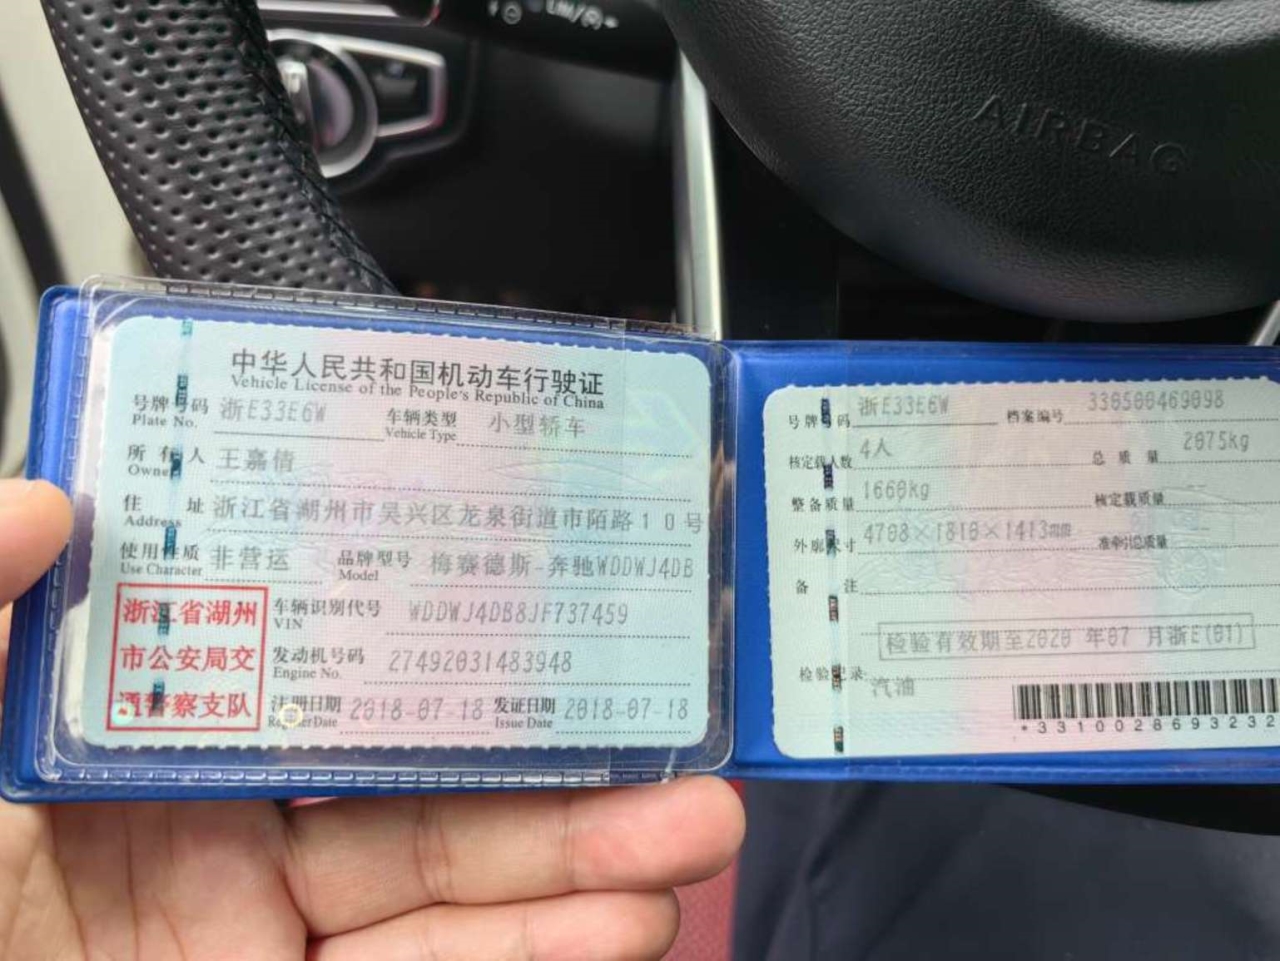 AIRBAG
中华人民共和国机动车行驶证
Vehicle License of the People's Republic of China
号牌号码 浙E33E6W 车辆类型 小型轿车
Plate No. Vehicle Type
所有人 王嘉倩
Owner
住址 浙江省湖州市吴兴区龙泉街道市陌路10号
Address
使用性质 非营运 品牌型号 梅赛德斯-奔驰WDDWJ4DB
Use Character Model
浙江省湖州
市公安局交
通警察支队
车辆识别代号 WDDWJ4DB8JF737459
VIN
发动机号码 27492031483948
Engine No.
注册日期 2018-07-18 发证日期 2018-07-18
Register Date Issue Date
号牌号码 浙E33E6W 档案编号 330500469098
核定载人数 4人 总质量 2075kg
整备质量 1660kg 核定载质量 --
外廓尺寸 4708×1810×1413mm 准牵引总质量 --
备注
检验有效期至2020年07月浙E(01)
检验记录
汽油
*331002869323​2